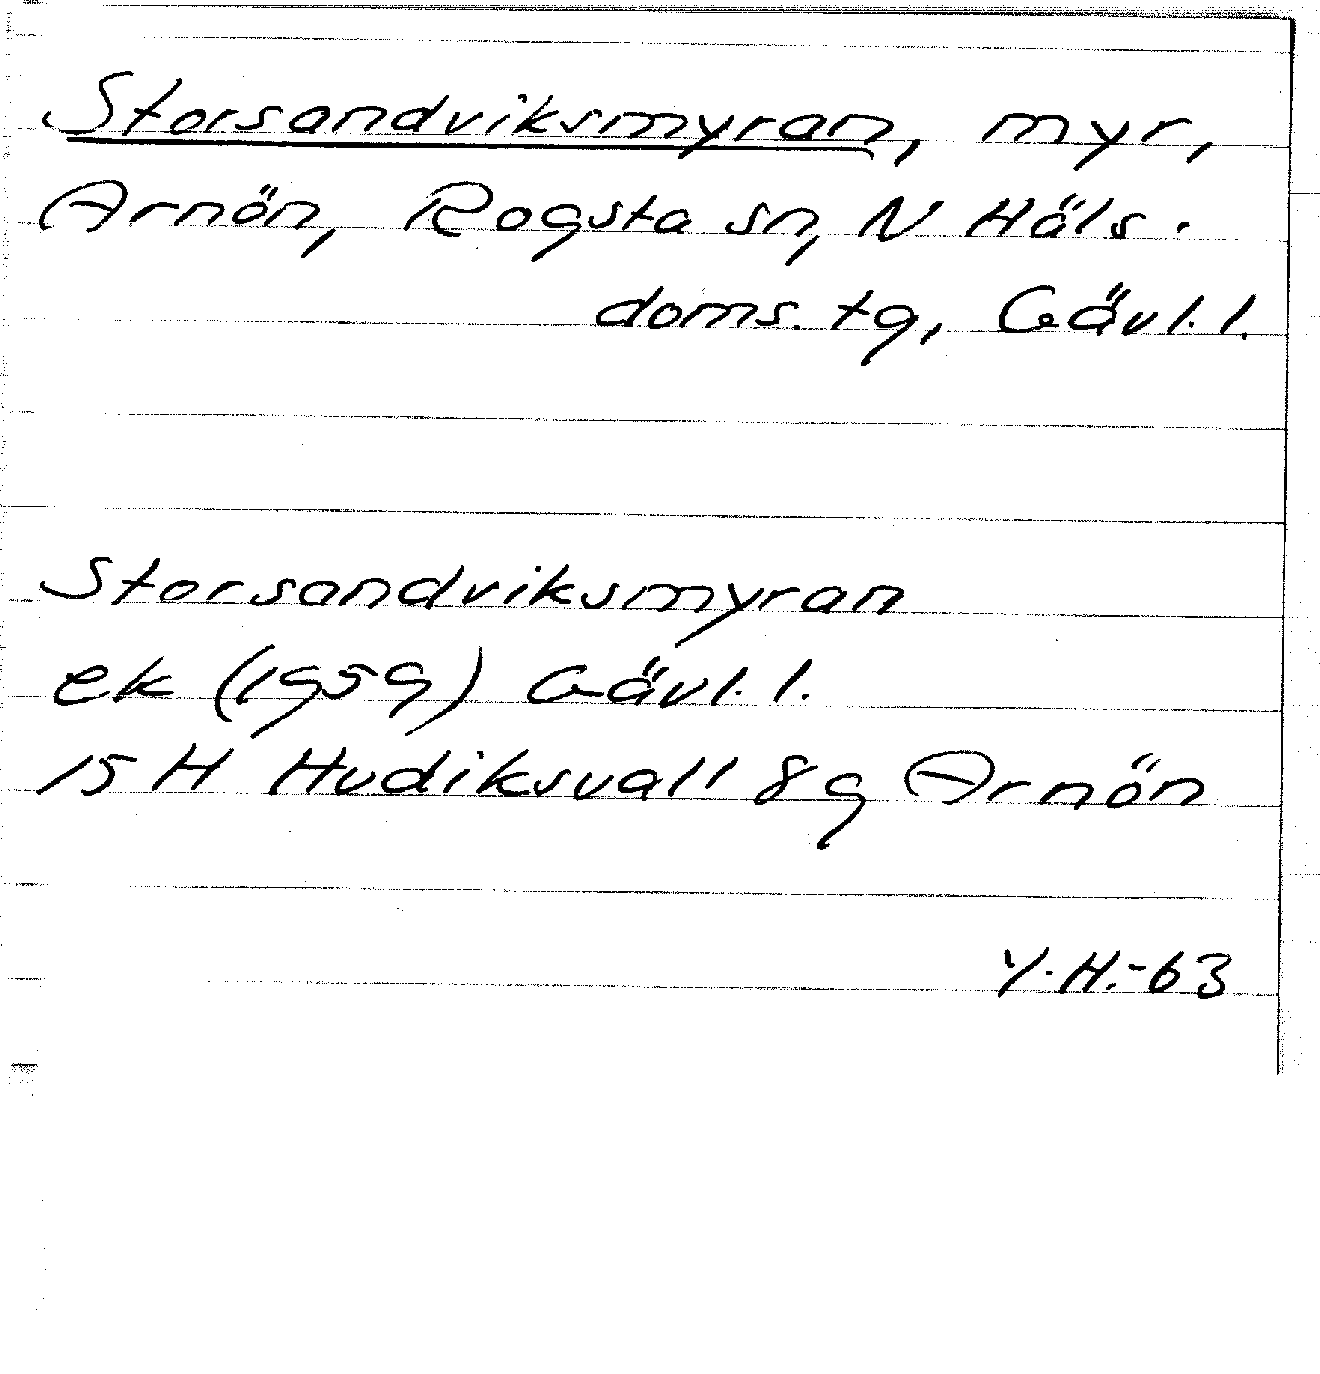 Storsandviksmyran, myr,
Arnön, Rogsta sn, N Häls.
doms. tg, Gävl. l.
Storsandviksmyran
ek (1959) Gävl. l.
15 H Hudiksvall 8g Arnön
Y.H.-63